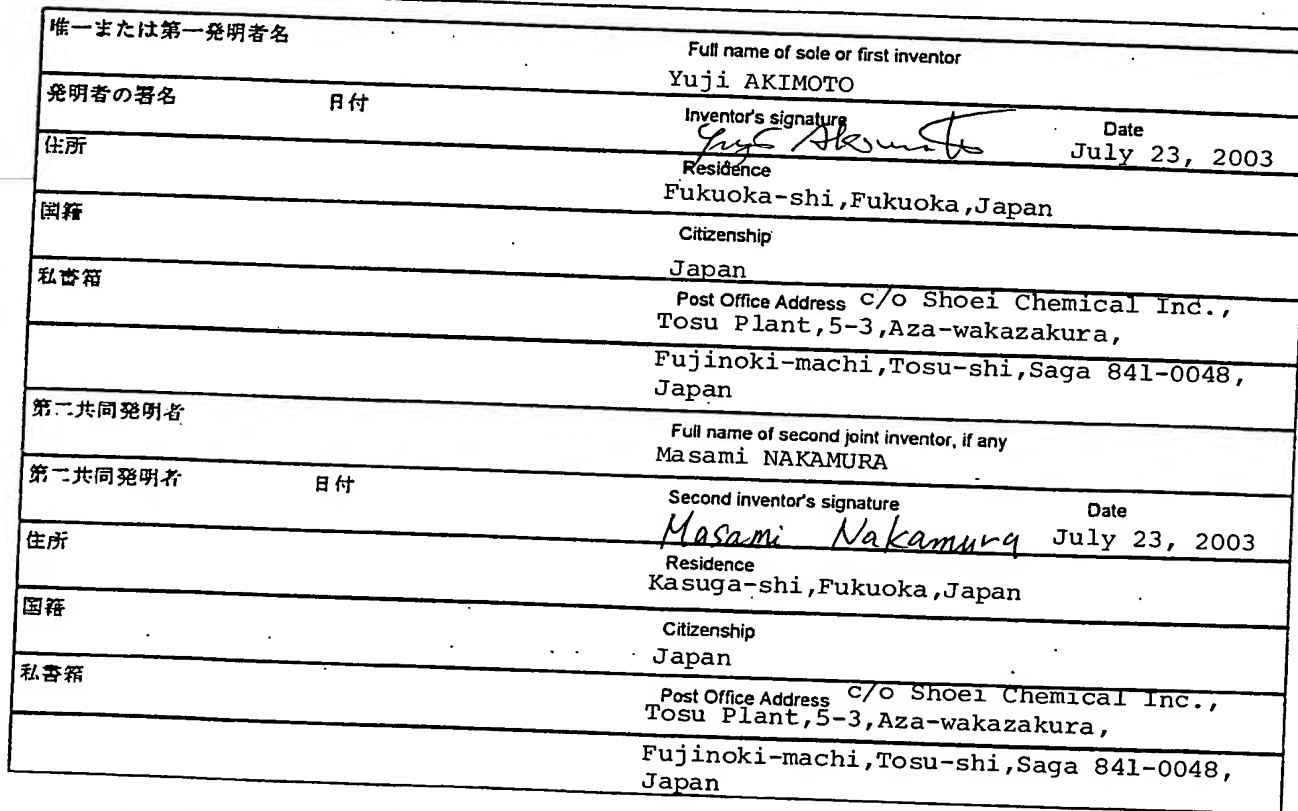 唯一または第一発明者名
Full name of sole or first inventor
Yuji AKIMOTO
発明者の署名 日付
Inventor's signature Date
Yuji Akimoto July 23, 2003
住所
Residence
Fukuoka-shi,Fukuoka,Japan
国籍
Citizenship
Japan
私書箱
Post Office Address c/o Shoei Chemical Inc.,
Tosu Plant,5-3,Aza-wakazakura,
Fujinoki-machi,Tosu-shi,Saga 841-0048,
Japan
第二共同発明者
Full name of second joint inventor, if any
Masami NAKAMURA
第二共同発明者 日付
Second inventor's signature Date
Masami Nakamura July 23, 2003
住所
Residence
Kasuga-shi,Fukuoka,Japan
国籍
Citizenship
Japan
私書箱
Post Office Address c/o Shoei Chemical Inc.,
Tosu Plant,5-3,Aza-wakazakura,
Fujinoki-machi,Tosu-shi,Saga 841-0048,
Japan